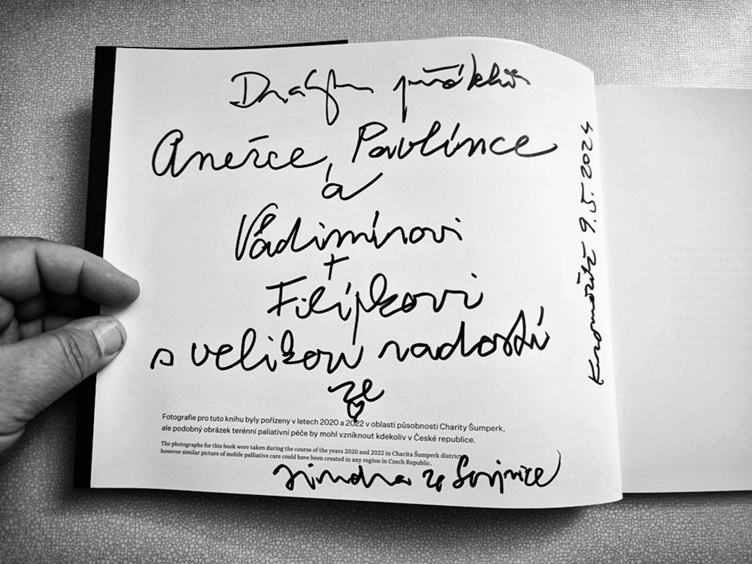 Drahým přátelům
Anežce, Pavlínce
a
Vladimírovi
+
Filípkovi
s velikou radostí
ze
Fotografie pro tuto knihu byly pořízeny v letech 2020 a 2022 v oblasti působnosti Charity Šumperk,
ale podobný obrázek terénní paliativní péče by mohl vzniknout kdekoliv v České republice.
The photographs for this book were taken during the course of the years 2020 and 2022 in Charita Šumperk district,
however similar picture of mobile palliative care could have been created in any region in Czech Republic.
Jindra ze Sovince
Kroměříž 9. 5. 2024